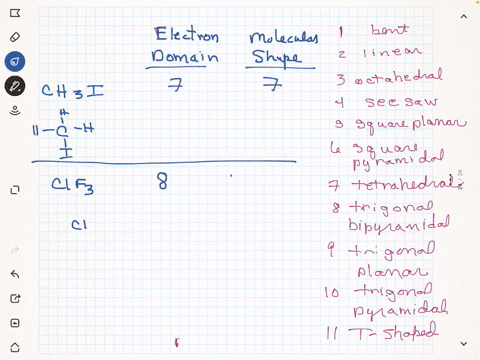 Electron Domain
Molecular Shape
CH3I 7 7
H
H - C - H
I
ClF3 8
Cl
1 bent
2 linear
3 octahedral
4 see saw
5 square planar
6 square pyramidal
7 tetrahedral
8 trigonal bipyramidal
9 trigonal planar
10 trigonal pyramidal
11 T-shaped